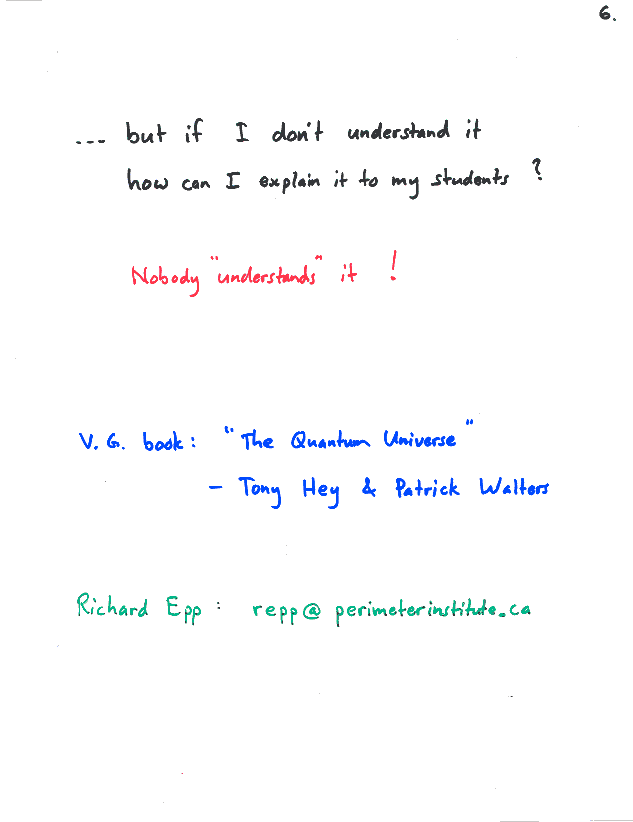 6.
... but if I don't understand it
how can I explain it to my students ?
Nobody "understands" it !
V. G. book : "The Quantum Universe"
- Tony Hey & Patrick Walters
Richard Epp : repp@perimeterinstitute.ca